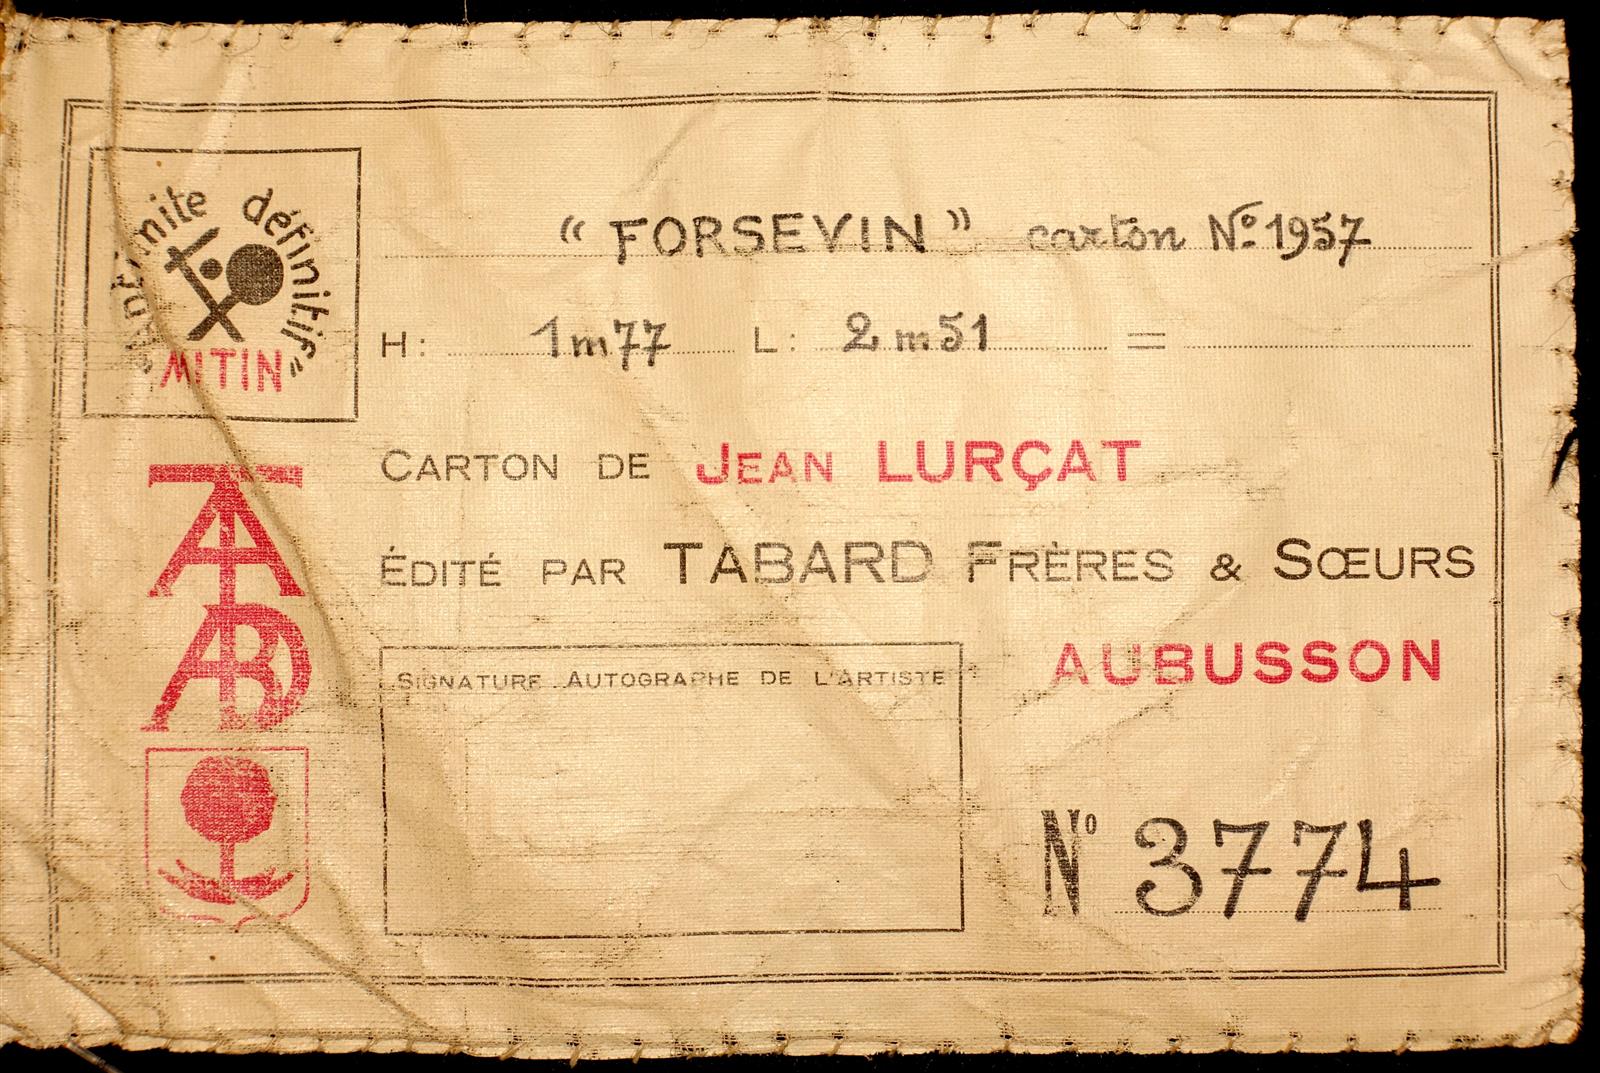 "Antimite définitif"
MITIN
"FORSEVIN" carton No 1957
H: 1m77 L: 2m51 =
CARTON DE JEAN LURÇAT
ÉDITÉ PAR TABARD FRÈRES & SŒURS
AUBUSSON
TABARD
SIGNATURE AUTOGRAPHE DE L'ARTISTE
No 3774